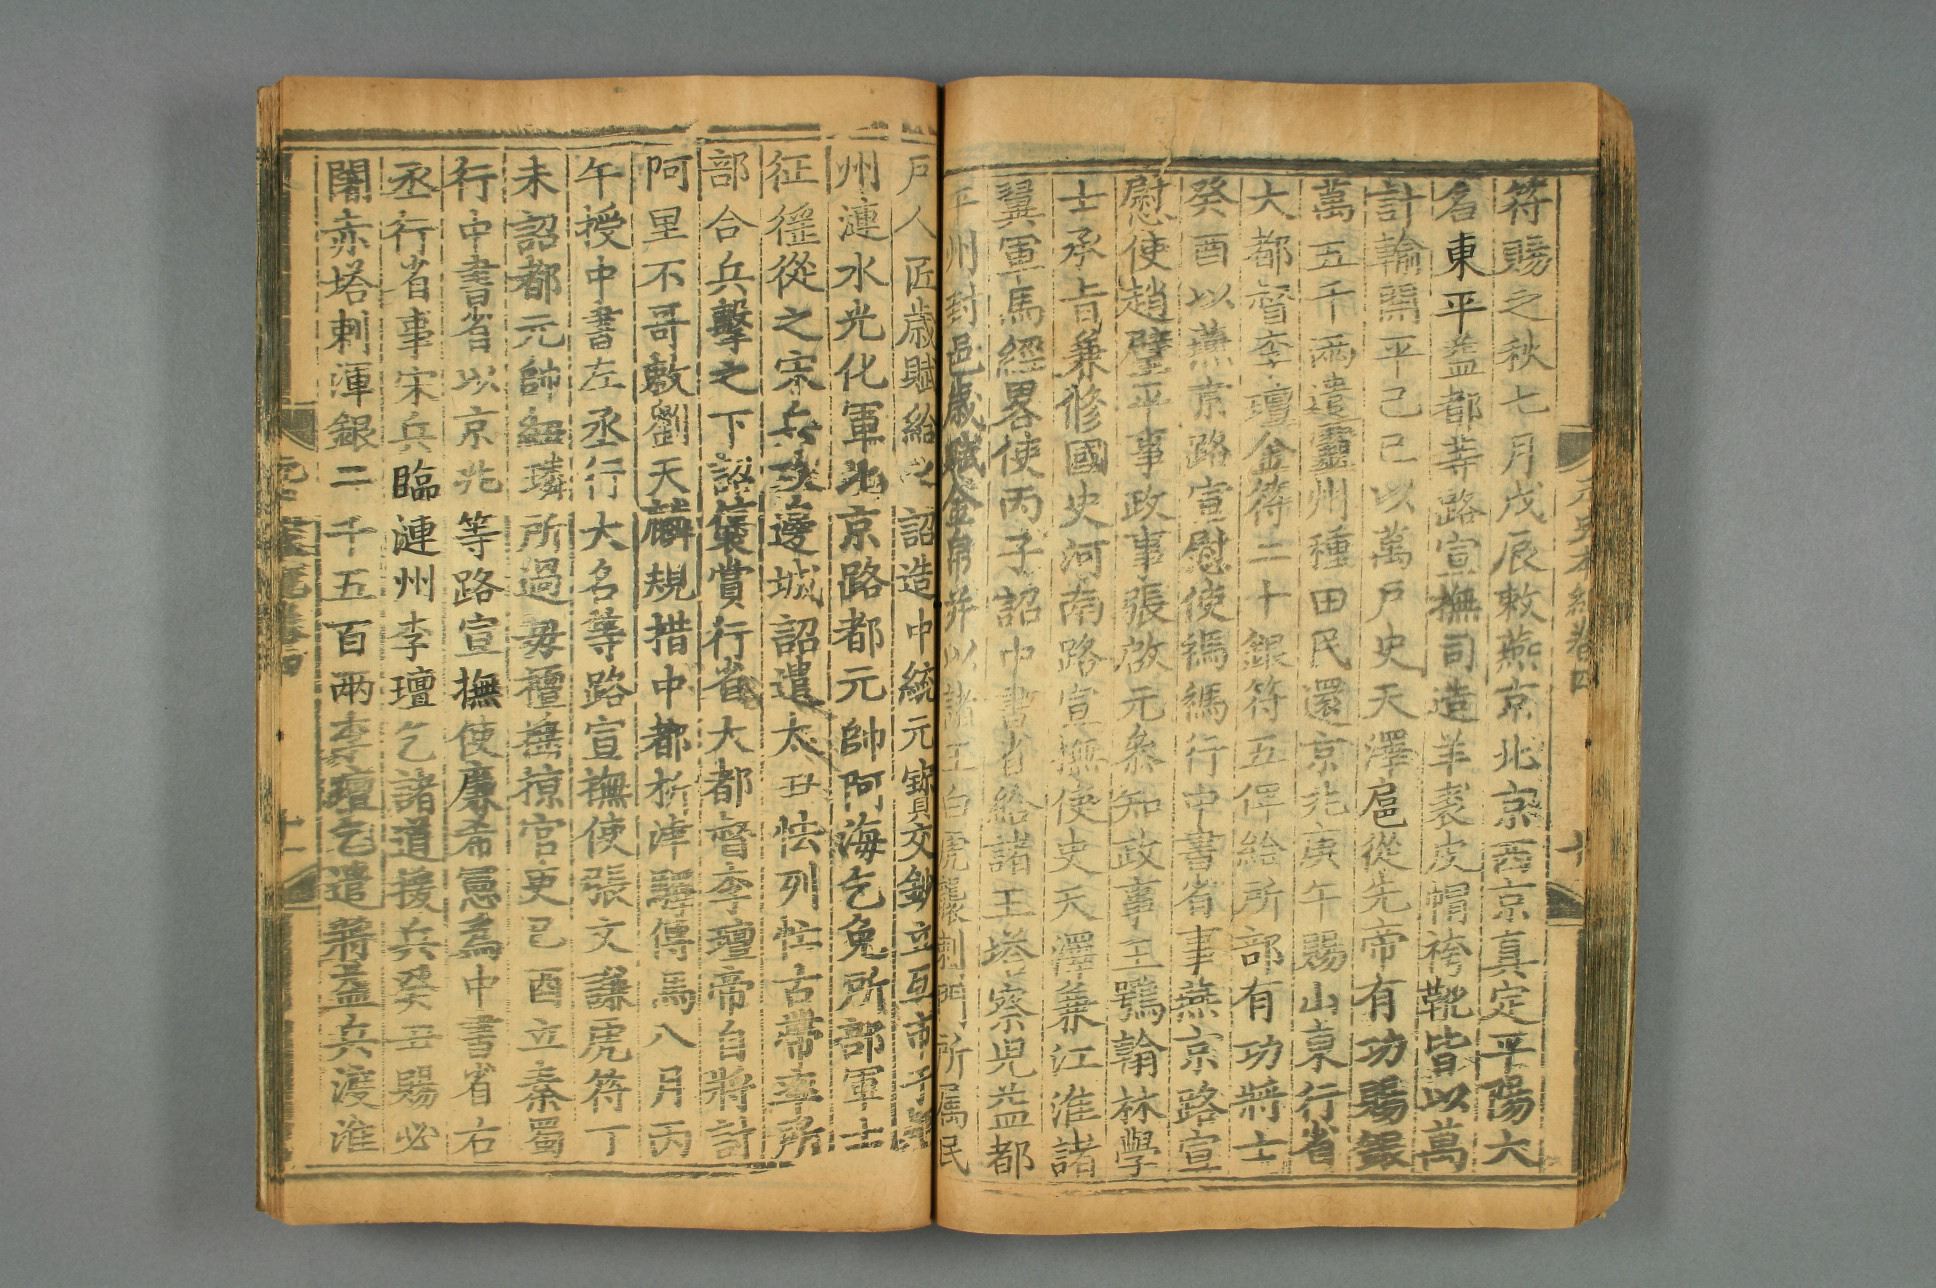 元史本紀卷四
十
符賜之秋七月戊辰敕燕京北京西京真定平陽大
名東平益都等路宣撫司造羊裘皮帽袴靴皆以萬
計輸開平己巳以萬戶史天澤扈從先帝有功賜銀
萬五千兩遣靈州種田民還京兆庚午賜山東行省
大都督李璮金符二十銀符五俾給所部有功將士
癸酉以燕京路宣慰使禡禡行中書省事燕京路宣
慰使趙璧平事政事張啟元叅知政事王鶚翰林學
士承旨兼修國史河南路宣撫使史天澤兼江淮諸
翼軍馬經畧使丙子詔中書省給諸王塔察兒益都
平州封邑歲賦金帛并以諸王白虎襲剌門所属民
戶人匠歲賦給之詔造中統元寳交鈔立互市于
州漣水光化軍北京路都元帥阿海乞免所部軍士
征徭從之宋兵攻邊城詔遣太丑怯列忙古帶率所
部合兵擊之下詔襃賞行省大都督李璮帝自將討
阿里不哥敕劉天麟規措中都析津驛傳馬八月丙
午授中書左丞行大名等路宣撫使張文謙虎符丁
未詔都元帥紐璘所過毋擅捶掠官吏己酉立秦蜀
行中書省以京兆等路宣撫使廉希憲為中書省右
丞行省事宋兵臨漣州李璮乞諸道援兵癸丑賜必
闍赤塔剌渾銀二千五百兩李璮乞遣將益兵渡淮
十一